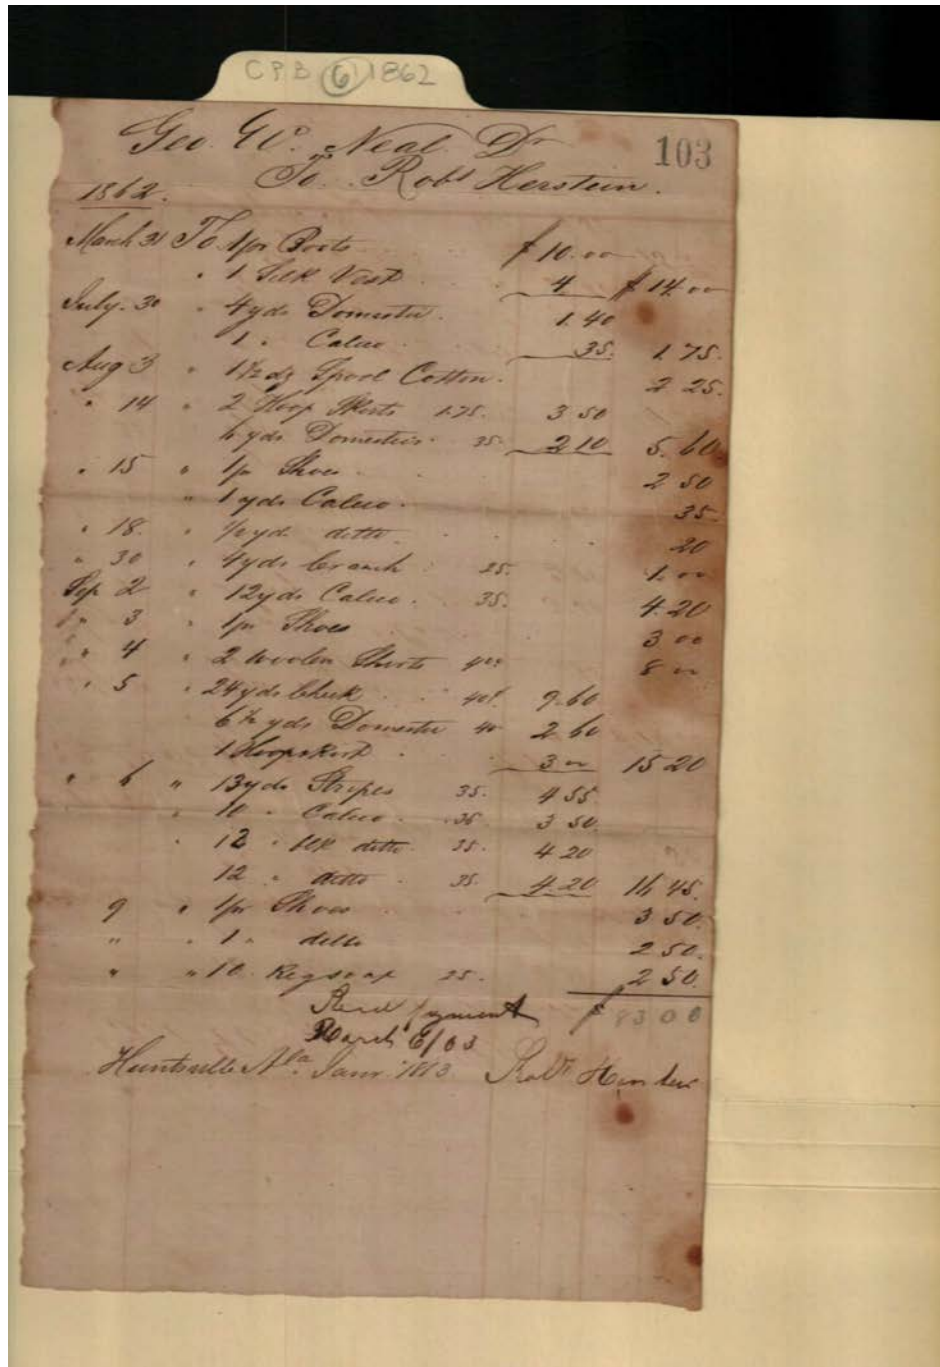 CPB 6 1862
103
Geo. W. Neal Dr
To Robt Herstein.
1862.
March 31 To 1 pr Boots $10.00
" 1 Silk Vest 4 $14.00
July. 30 " 4 yds Domestic. 1.40
1 " Calico. 35. 1.75.
Aug 3 " 1 1/2 dz Spool Cotton. 2 25.
" 14 " 2 Hoop Skirts 1.75. 3 50
6 yds Domestics. 35 2 10 5.60
" 15 " 1 pr Shoes. 2 50
" 1 yds Calico. 35
" 18. " 1/2 yd. ditto. 20
" 30 " 4 yds 25. 1.00
Sep 2 " 12 yds Calico. 35. 4.20
" 3 " 1 pr Shoes 3 00
" 4 " 2 woolen Shirts 400 8 00
" 5 " 24 yds Check 40. 9.60
6 1/2 yds Domestic 40 2 60
1 Hoopskirt 3 00 15 20
" 6 " 13 yds Stripes 35. 4 55
" 10 " Calico. 35 3 50.
" 12 " ditto. 35. 4 20
12 " ditto. 35. 4.20 16 45.
9 " 1 pr Shoes 3 50.
" " 1 " ditto 2 50.
" " 10 25. 2 50.
$ 83 00
Recd payment
March 6/63
Huntsville Ala. Janr 1863 Robt Herstein